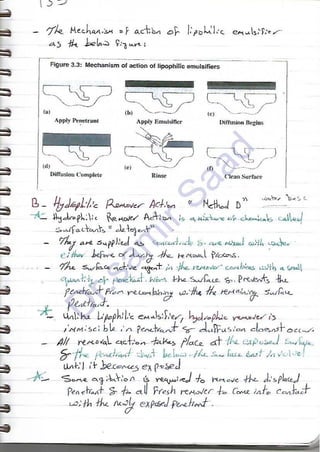 - The Mechanism of action of lipophilic emulsifier
as the below figure:
Figure 3.3: Mechanism of action of lipophilic emulsifiers
(a) (b) (c)
Apply Penetrant Apply Emulsifier Diffusion Begins
(d) (e) (f)
Diffusion Complete Rinse Clean Surface
B- Hydrophilic Remover Action "Method D" water base
Hydrophilic Remover Action is a mixture of chemicals called
surfactants "detergent"
- They are supplied as concentrate & are mixed with water
either before or during the removal process.
- The surface active agent in the remover combines with a small
quantity of penetrant from the surface & prevents the
penetrant from recombining with the remaining surface
penetrant.
- Unlike lipophilic emulsifier, hydrophilic remover is
immiscible in penetrant & diffusion doesnot occur.
- All removal action takes place at the exposed surface
& the penetrant just below the surface isnt involved
until it becomes exposed
- Some agitation is required to remove the displaced
penetrant & to all fresh remover to come into contact
with the newly exposed penetrant.
Saad